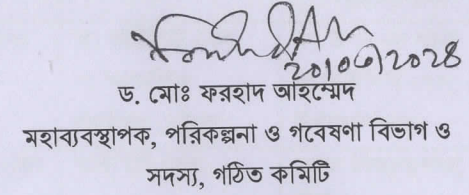 ২০/০৩/২০২৪
ড. মোঃ ফরহাদ আহম্মেদ
মহাব্যবস্থাপক, পরিকল্পনা ও গবেষণা বিভাগ ও
সদস্য, গঠিত কমিটি